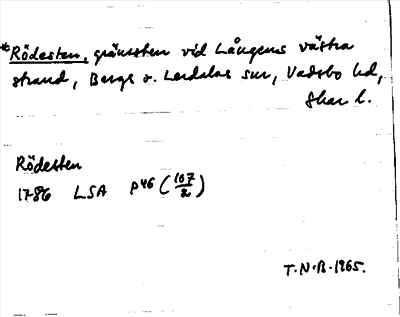 *Rödesten, gränssten vid Långens västra
strand, Bergs o. Lerdalas snr, Vadsbo hd,
Skar. l.
Rödesten
1786 LSA p46 (107/2)
T.N.B. 1965.